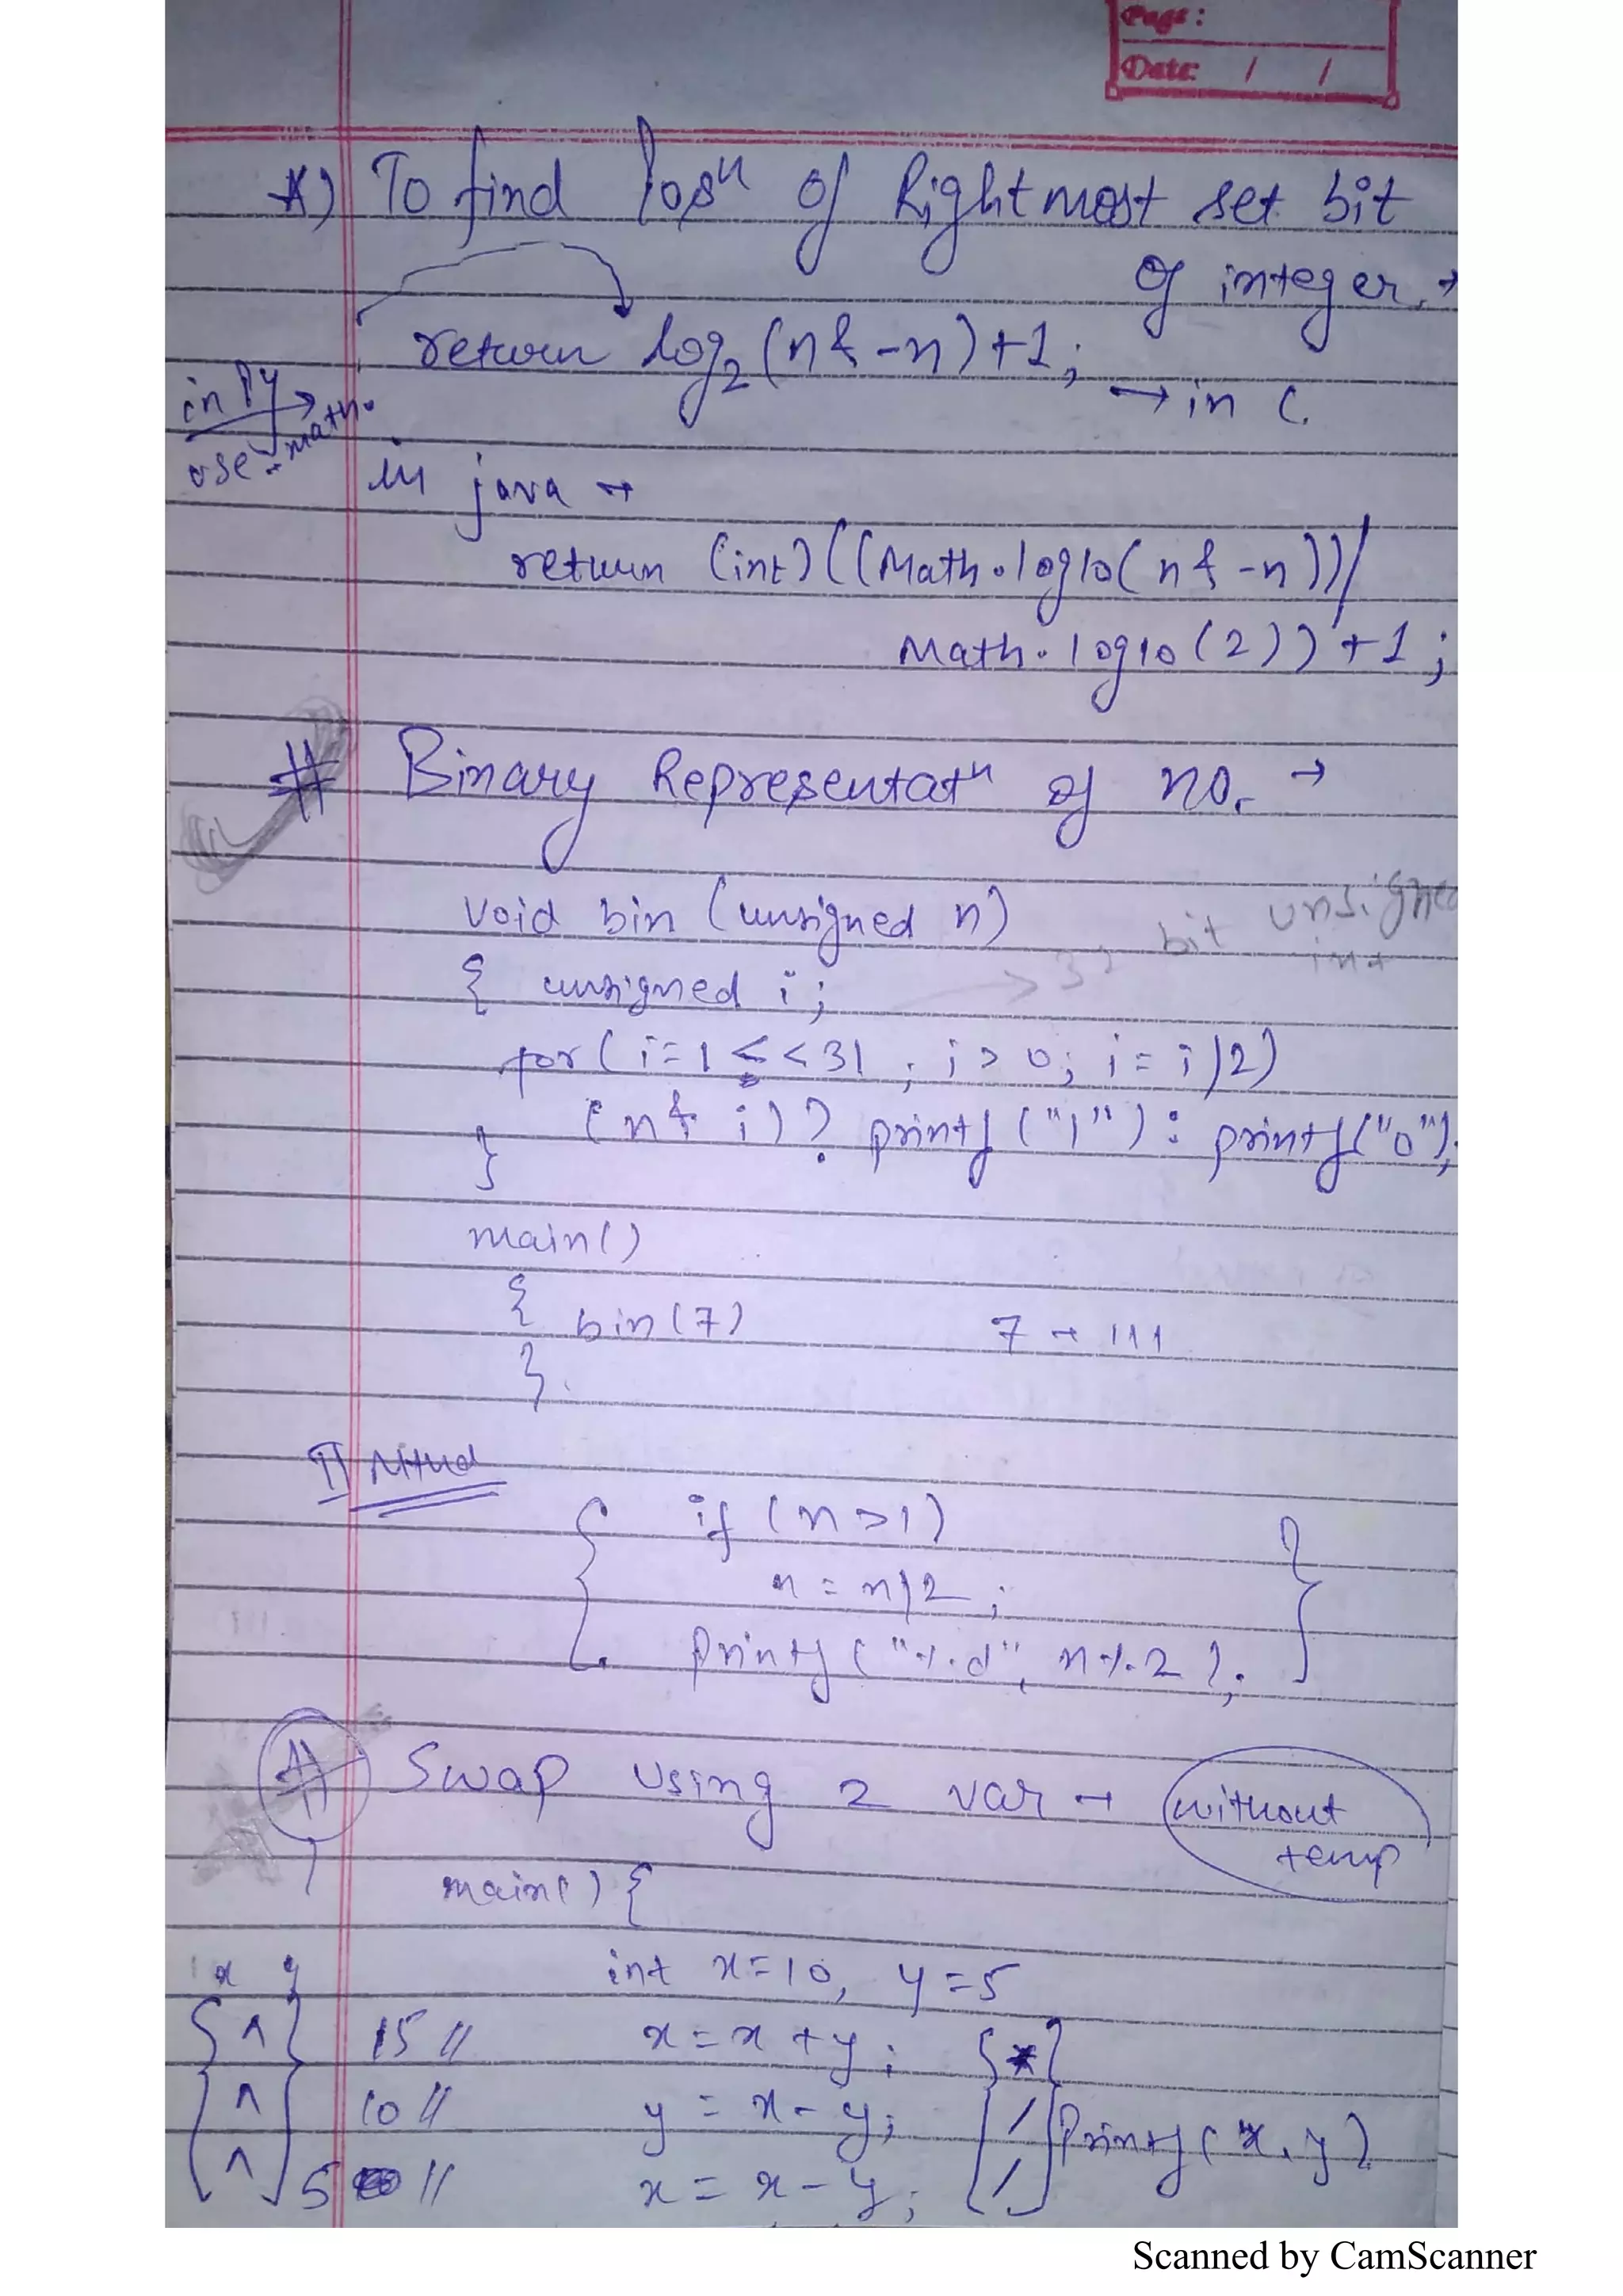 Page:
Date: / /
*) To find posn of Rightmost set bit
of integer. →
return log2 (n & -n) +1;
→ in C.
in Py →
use math.
in java →
return (int) ((Math.log10(n & -n)) /
Math.log10(2)) +1;
# Binary Representatn of no. →
void bin (unsigned n)
{ unsigned i; → 32 bit unsigned int
for (i=1 << 31 ; i > 0; i = i/2)
(n & i) ? printf ("1") : printf("0");
}
main()
{ bin(7) 7 → 111
}.
II Mthd
{ if (n>1)
n = n/2;
printf ("%d", n%2); }
# Swap using 2 var → without
temp
main() {
int x=10, y=5
x y
{ ^ } 15 // x = x + y; { * }
^ 10 // y = x - y; / printf( x, y)
^ 5 // x = x - y; /
Scanned by CamScanner